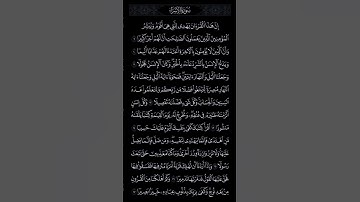 سُورَةُ الإِسْرَاءِ
إِنَّ هَٰذَا ٱلْقُرْءَانَ يَهْدِى لِلَّتِى هِىَ أَقْوَمُ وَيُبَشِّرُ
ٱلْمُؤْمِنِينَ ٱلَّذِينَ يَعْمَلُونَ ٱلصَّٰلِحَٰتِ أَنَّ لَهُمْ أَجْرًا كَبِيرًا
وَأَنَّ ٱلَّذِينَ لَا يُؤْمِنُونَ بِٱلْءَاخِرَةِ أَعْتَدْنَا لَهُمْ عَذَابًا أَلِيمًا
وَيَدْعُ ٱلْإِنسَٰنُ بِٱلشَّرِّ دُعَآءَهُۥ بِٱلْخَيْرِ وَكَانَ ٱلْإِنسَٰنُ عَجُولًا
وَجَعَلْنَا ٱلَّيْلَ وَٱلنَّهَارَ ءَايَتَيْنِ فَمَحَوْنَآ ءَايَةَ ٱلَّيْلِ وَجَعَلْنَآ ءَايَةَ
ٱلنَّهَارِ مُبْصِرَةً لِّتَبْتَغُوا۟ فَضْلًا مِّن رَّبِّكُمْ وَلِتَعْلَمُوا۟ عَدَدَ
ٱلسِّنِينَ وَٱلْحِسَابَ وَكُلَّ شَىْءٍ فَصَّلْنَٰهُ تَفْصِيلًا وَكُلَّ إِنسَٰنٍ
أَلْزَمْنَٰهُ طَٰٓئِرَهُۥ فِى عُنُقِهِۦ وَنُخْرِجُ لَهُۥ يَوْمَ ٱلْقِيَٰمَةِ كِتَٰبًا يَلْقَىٰهُ
مَنشُورًا ٱقْرَأْ كِتَٰبَكَ كَفَىٰ بِنَفْسِكَ ٱلْيَوْمَ عَلَيْكَ حَسِيبًا
مَّنِ ٱهْتَدَىٰ فَإِنَّمَا يَهْتَدِى لِنَفْسِهِۦ وَمَن ضَلَّ فَإِنَّمَا يَضِلُّ
عَلَيْهَا وَلَا تَزِرُ وَازِرَةٌ وِزْرَ أُخْرَىٰ وَمَا كُنَّا مُعَذِّبِينَ حَتَّىٰ نَبْعَثَ
رَسُولًا وَإِذَآ أَرَدْنَآ أَن نُّهْلِكَ قَرْيَةً أَمَرْنَا مُتْرَفِيهَا فَفَسَقُوا۟ فِيهَا
فَحَقَّ عَلَيْهَا ٱلْقَوْلُ فَدَمَّرْنَٰهَا تَدْمِيرًا وَكَمْ أَهْلَكْنَا مِنَ ٱلْقُرُونِ
مِنۢ بَعْدِ نُوحٍ وَكَفَىٰ بِرَبِّكَ بِذُنُوبِ عِبَادِهِۦ خَبِيرًۢا بَصِيرًا